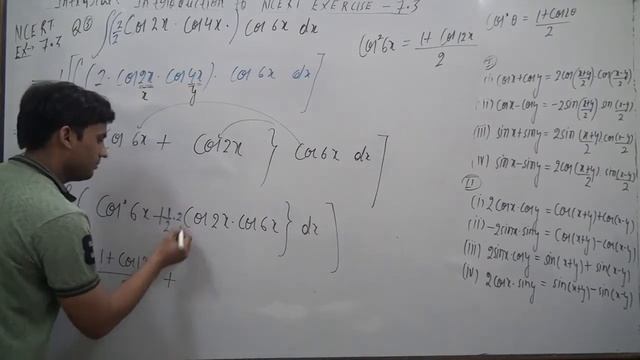 Introduction to NCERT EXERCISE - 7.3
NCERT
Ex- 7.3
Q③ ∫(2/2 Cos2x · Cos4x ·) Cos 6x dx
[∫(2 · Cos2x · Cos4x) · Cos 6x dx]
x y
Cos 6x + Cos2x } Cos6x dx ]
Cos²6x + 1/2 · 2 Cos2x · Cos6x } dx ]
1 + Cos12x +
Cos²6x = (1 + Cos12x)/2
Cos²θ = (1+Cos2θ)/2
I
(i) Cosx+Cosy = 2Cos(x+y)/2 · Cos(x-y)/2
(ii) Cosx-Cosy = -2Sin(x+y)/2 Sin(x-y)/2
(iii) Sinx+Siny = 2Sin(x+y)/2 Cos(x-y)/2
(iv) Sinx-Siny = 2Cos(x+y)/2 · Sin(x-y)/2
II
(i) 2Cosx·Cosy = Cos(x+y)+Cos(x-y)
(ii) -2Sinx·Siny = Cos(x+y)-Cos(x-y)
(iii) 2Sinx·Cosy = Sin(x+y)+Sin(x-y)
(iv) 2Cosx·Siny = Sin(x+y)-Sin(x-y)